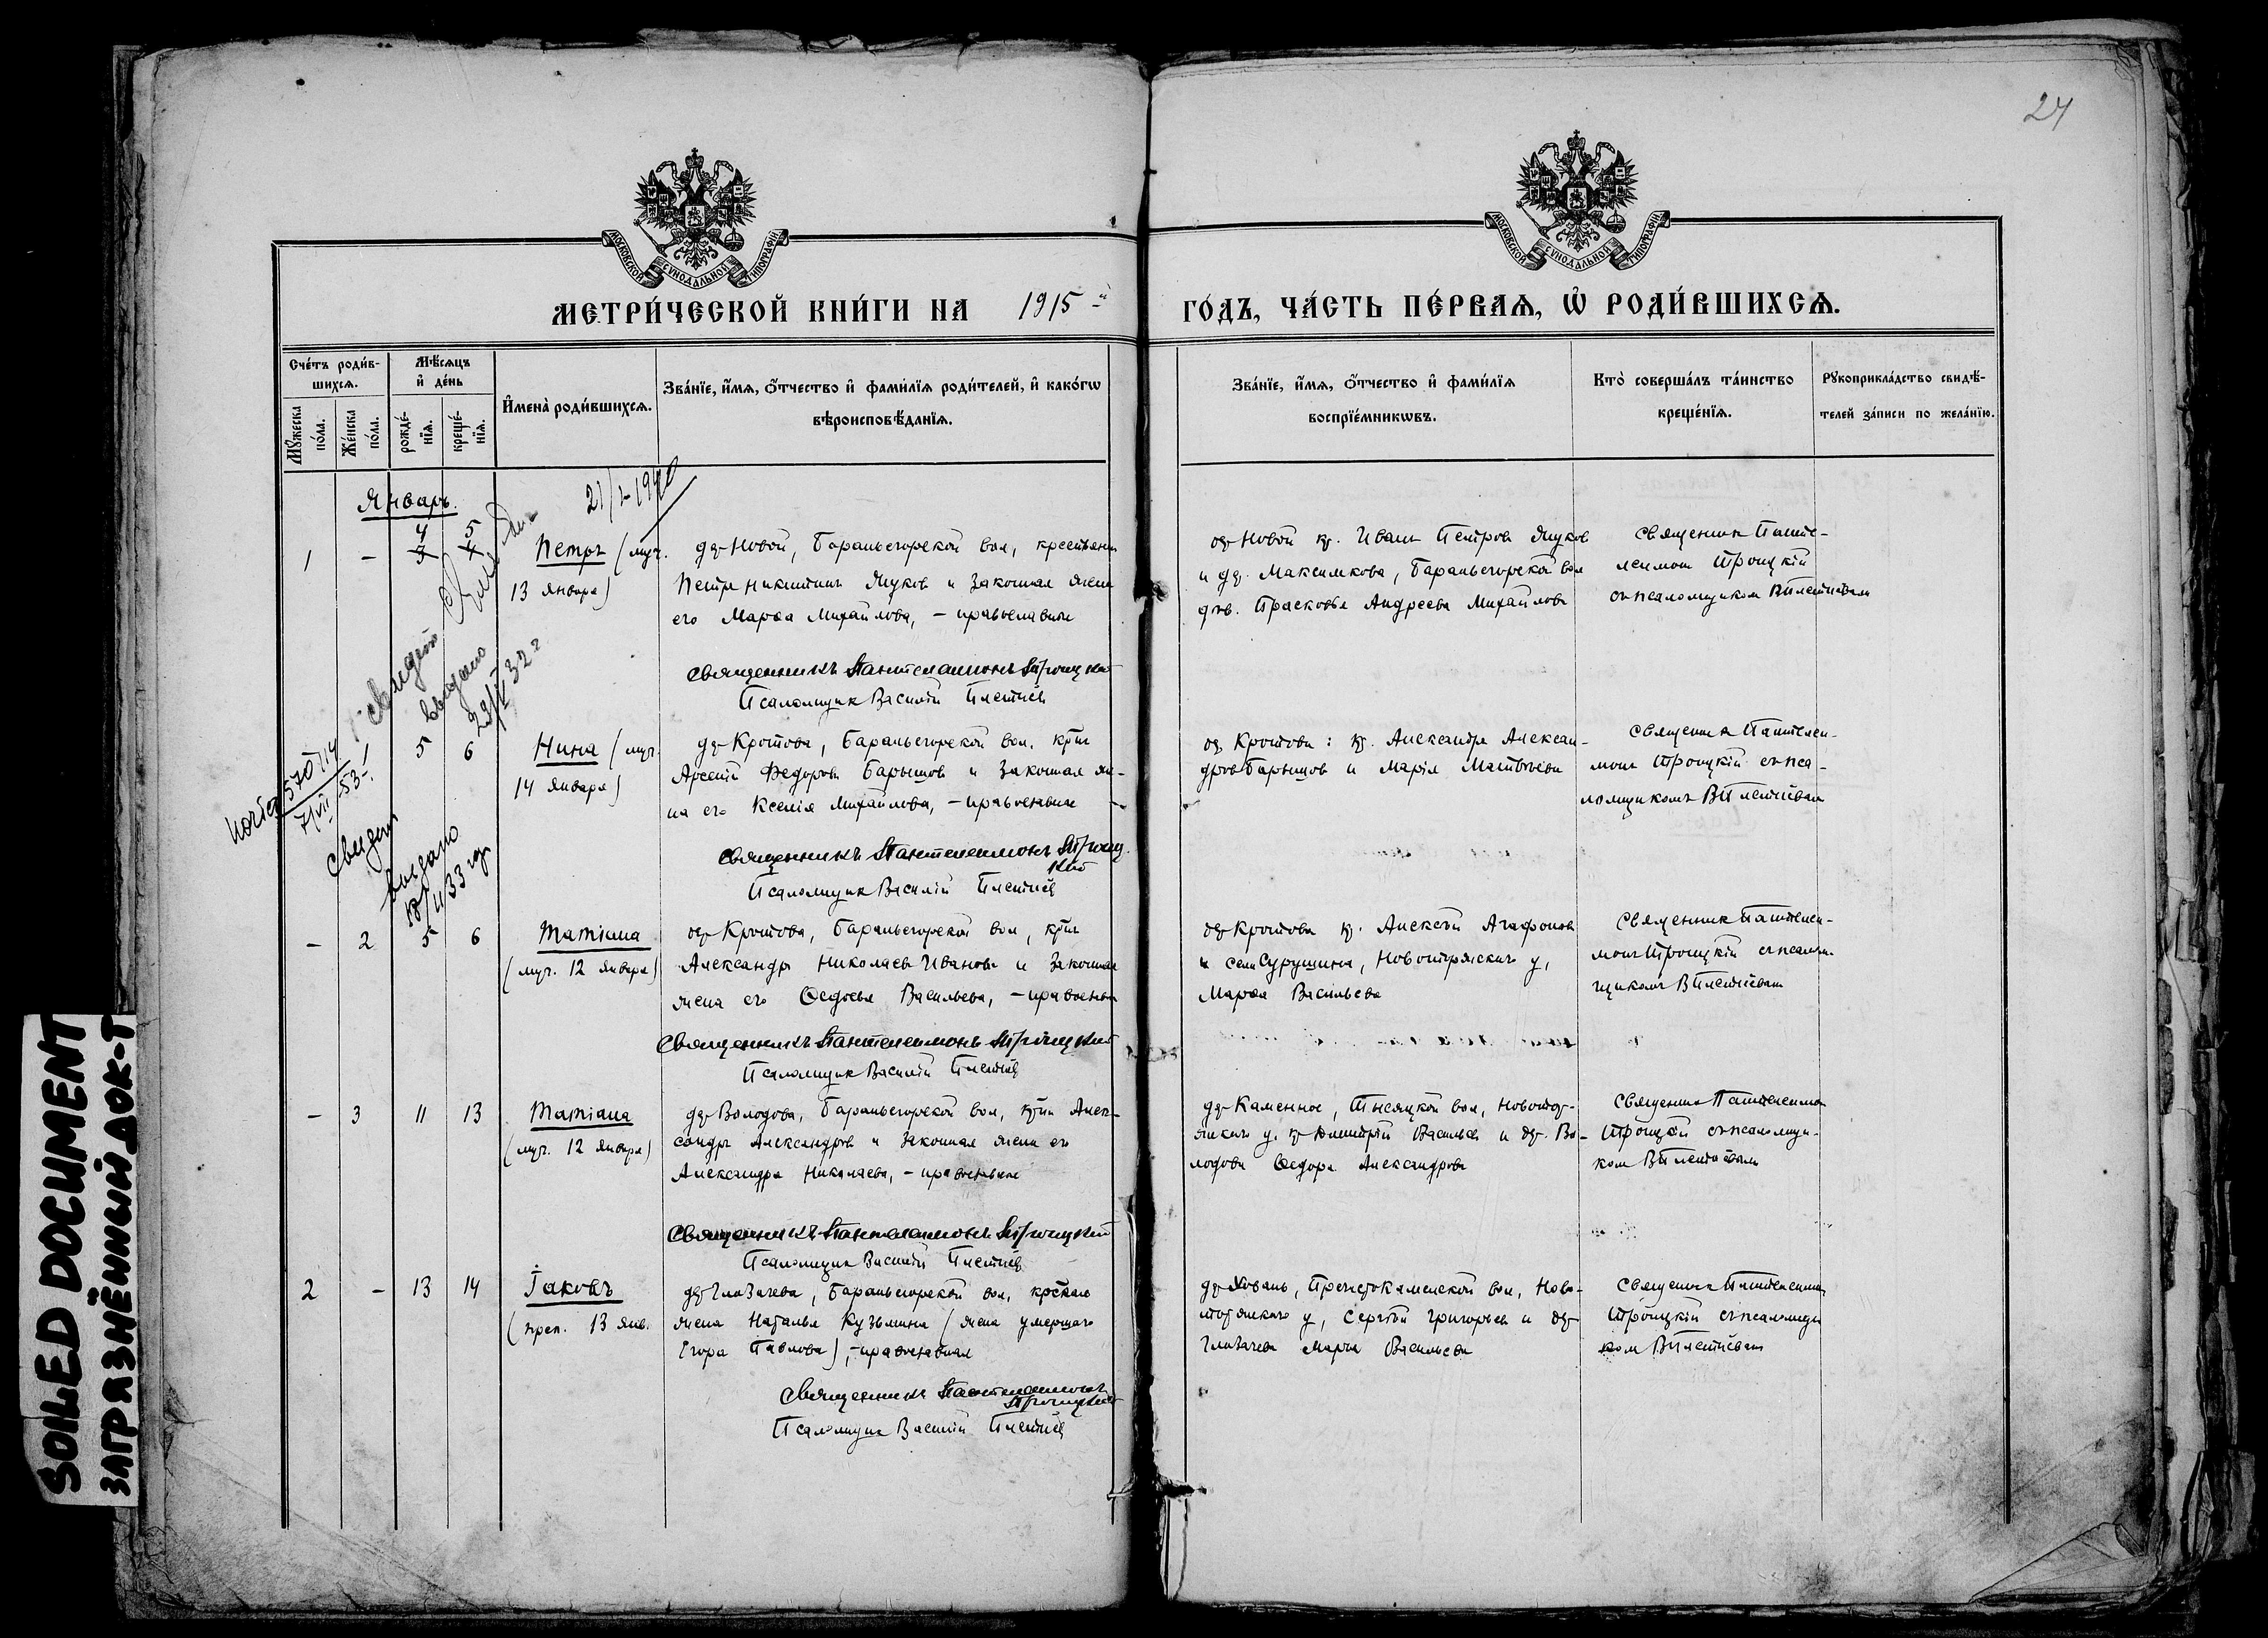 24
МОСКОВСКОЙ СУНОДАЛЬНОЙ ТИПОГРАФІИ
МОСКОВСКОЙ СУНОДАЛЬНОЙ ТИПОГРАФІИ
МЕТРИ́ЧЕСКОЙ КНИ́ГИ НА 1915 й
ГО́ДЪ, ЧА́СТЬ ПЕ́РВАѦ, Ѡ҆ РОДИ́ВШИХСѦ.
Сче́тъ роди́в-
шихсѧ.
Мѣ́сѧцъ
и҆ де́нь
Мꙋ́жеска
по́ла.
Же́нска
по́ла.
рожде́-
нїѧ.
креще́-
нїѧ.
И҆мена̀ роди́вшихсѧ.
Зва́нїе, и҆́мѧ, ѻ҆́тчество и҆ фами́лїѧ роди́телей, и҆ како́гѡ
вѣроисповѣ́данїѧ.
Зва́нїе, и҆́мѧ, ѻ҆́тчество и҆ фами́лїѧ
воспрїе́мникѡвъ.
Кто̀ соверша́лъ та́инство
креще́нїѧ.
Рꙋкоприкла́дство свидѣ́-
телей за́писи по жела́нїю.
Январь.
4 5
1 - Петръ (муч.
13 января)
дер Новой, Бараньегорской вол, крестьянин
Петръ Никитинъ Жуков и законная жена
его Марѳа Михайлова, - православные
Священникъ Пантелеимонъ Троицкій
Псаломщик Василій Плетнёв
дер Новой кр. Иван Петров Жуков
и дер. Максимкова, Бараньегорской вол
дѣв. Прасковья Андреева Михайлова
Священник Панте-
леимон Троицкій
съ псаломщиком В Плетнёвым
свидет
выдано
1 5 6 Нина (муч.
14 января)
дер Кротова, Бараньегорской вол. крнин
Арсеній Федоров Барышов и законная же-
на его Ксенія Михайлова, - православные
Священникъ Пантелеимонъ Троиц
кій
Псаломщик Василій Плетнёв
дер Кротова: кр. Александр Алексан-
дров Барышов и Марія Матвѣева
Священник Пантелеи-
мон Троицкій съ пса-
ломщикомъ В Плетнёвым
570/14
7/VII 53
Свидет
выдано
- 2 5 6 Татіана
(муч. 12 января)
дер Кротова, Бараньегорской вол, крнин
Александр Николаев Иванов и законная
жена его Ѳедосья Васильева, - православные
Священникъ Пантелеимонъ Троицкій
Псаломщик Василій Плетнёв
дер Кротова кр. Алексѣй Агафонов
и села Сурушина, Новоторжскаго у,
Марѳа Васильева
Священник Пантелеи-
мон Троицкій съ псалом-
щиком В Плетнёвым
- 3 11 13 Татіана
(муч. 12 января)
дер Володова, Бараньегорской вол, крнин Алек-
сандръ Александров и законная жена его
Александра Николаева, - православные
Священникъ Пантелеимонъ Троицкій
Псаломщик Василій Плетнёв
дер Каменное, Тысяцкой вол, Новотор-
жскаго у. кр Димитрій Васильев и дер. Во-
лодова Ѳедора Александрова
Священник Пантелеимон
Троицкій съ псаломщи-
ком В Плетнёвым
2 - 13 14 Іаковъ
(преп. 13 янв.
дер Глазачева, Бараньегорской вол, крстьян
жена Наталья Кузьмина (жена умершаго
Егора Павлова), - православная
Священник Пантелеимонъ
Троицкій
Псаломщик Василій Плетнёв
дер Ховань, Пречистокаменской вол, Ново-
торжскаго у, Сергѣй Григорьев и дер
Глазачева Марѳа Васильева
Священник Пантелеимон
Троицкій съ псаломщи
ком В Плетнёвым
SOILED DOCUMENT
ЗАГРЯЗНЁННЫЙ ДОК-Т